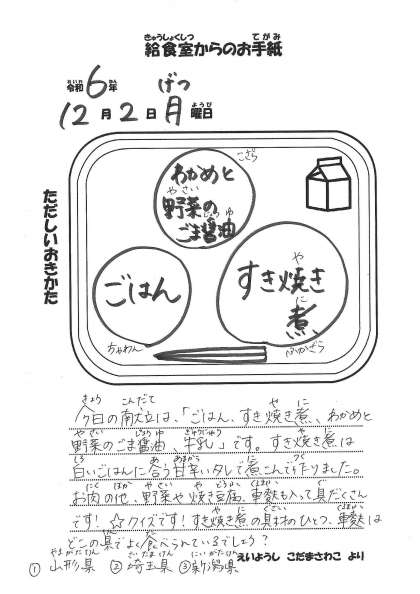 きゅうしょくしつ てがみ
給食室からのお手紙
れいわ ねん げつ
令和6年
ようび
12月2日月曜日
ただしいおきかた
こざら
わかめと
やさい
野菜の
しょうゆ
ごま醤油
ごはん
ちゃわん
や
すき焼き
に
煮
ふかざら
きょう こんだて や に
今日の献立は、「ごはん、すき焼き煮、わかめと
やさい しょうゆ ぎゅうにゅう や に
野菜のごま醤油、牛乳」です。すき焼き煮は
しろ あ あまから に つく
白いごはんに合う甘辛いタレで煮こんで作りました。
にく ほか やさい や どうふ くるまぶ はい ぐ
お肉の他、野菜や焼き豆腐、車麩も入って具だくさん
です!☆クイズです!すき焼き煮の具材のひとつ、車麩は
どこの県でよく食べられているでしょう?
やまがたけん さいたまけん にいがたけん
①山形県 ②埼玉県 ③新潟県
えいようし こだまさわこ より